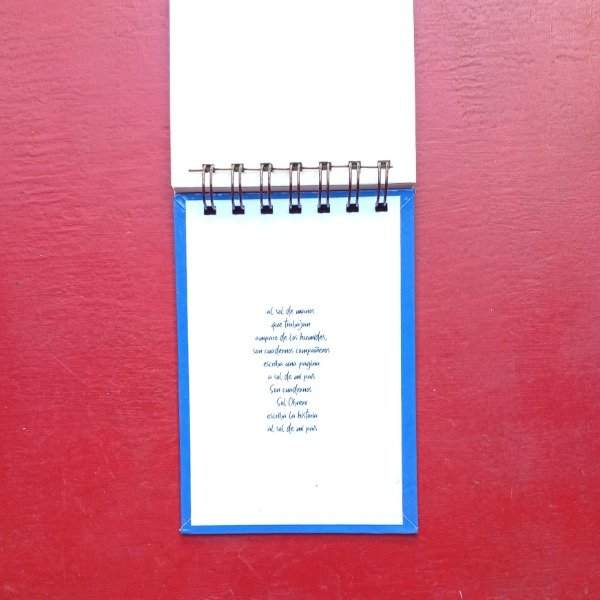 al sol de manos
que trabajan
amparo de los humildes,
son cuadernos compañeros
escriba una pagina
a sol de mi país
Son cuadernos
Sol Obrero
escriba la historia
al sol de mi país